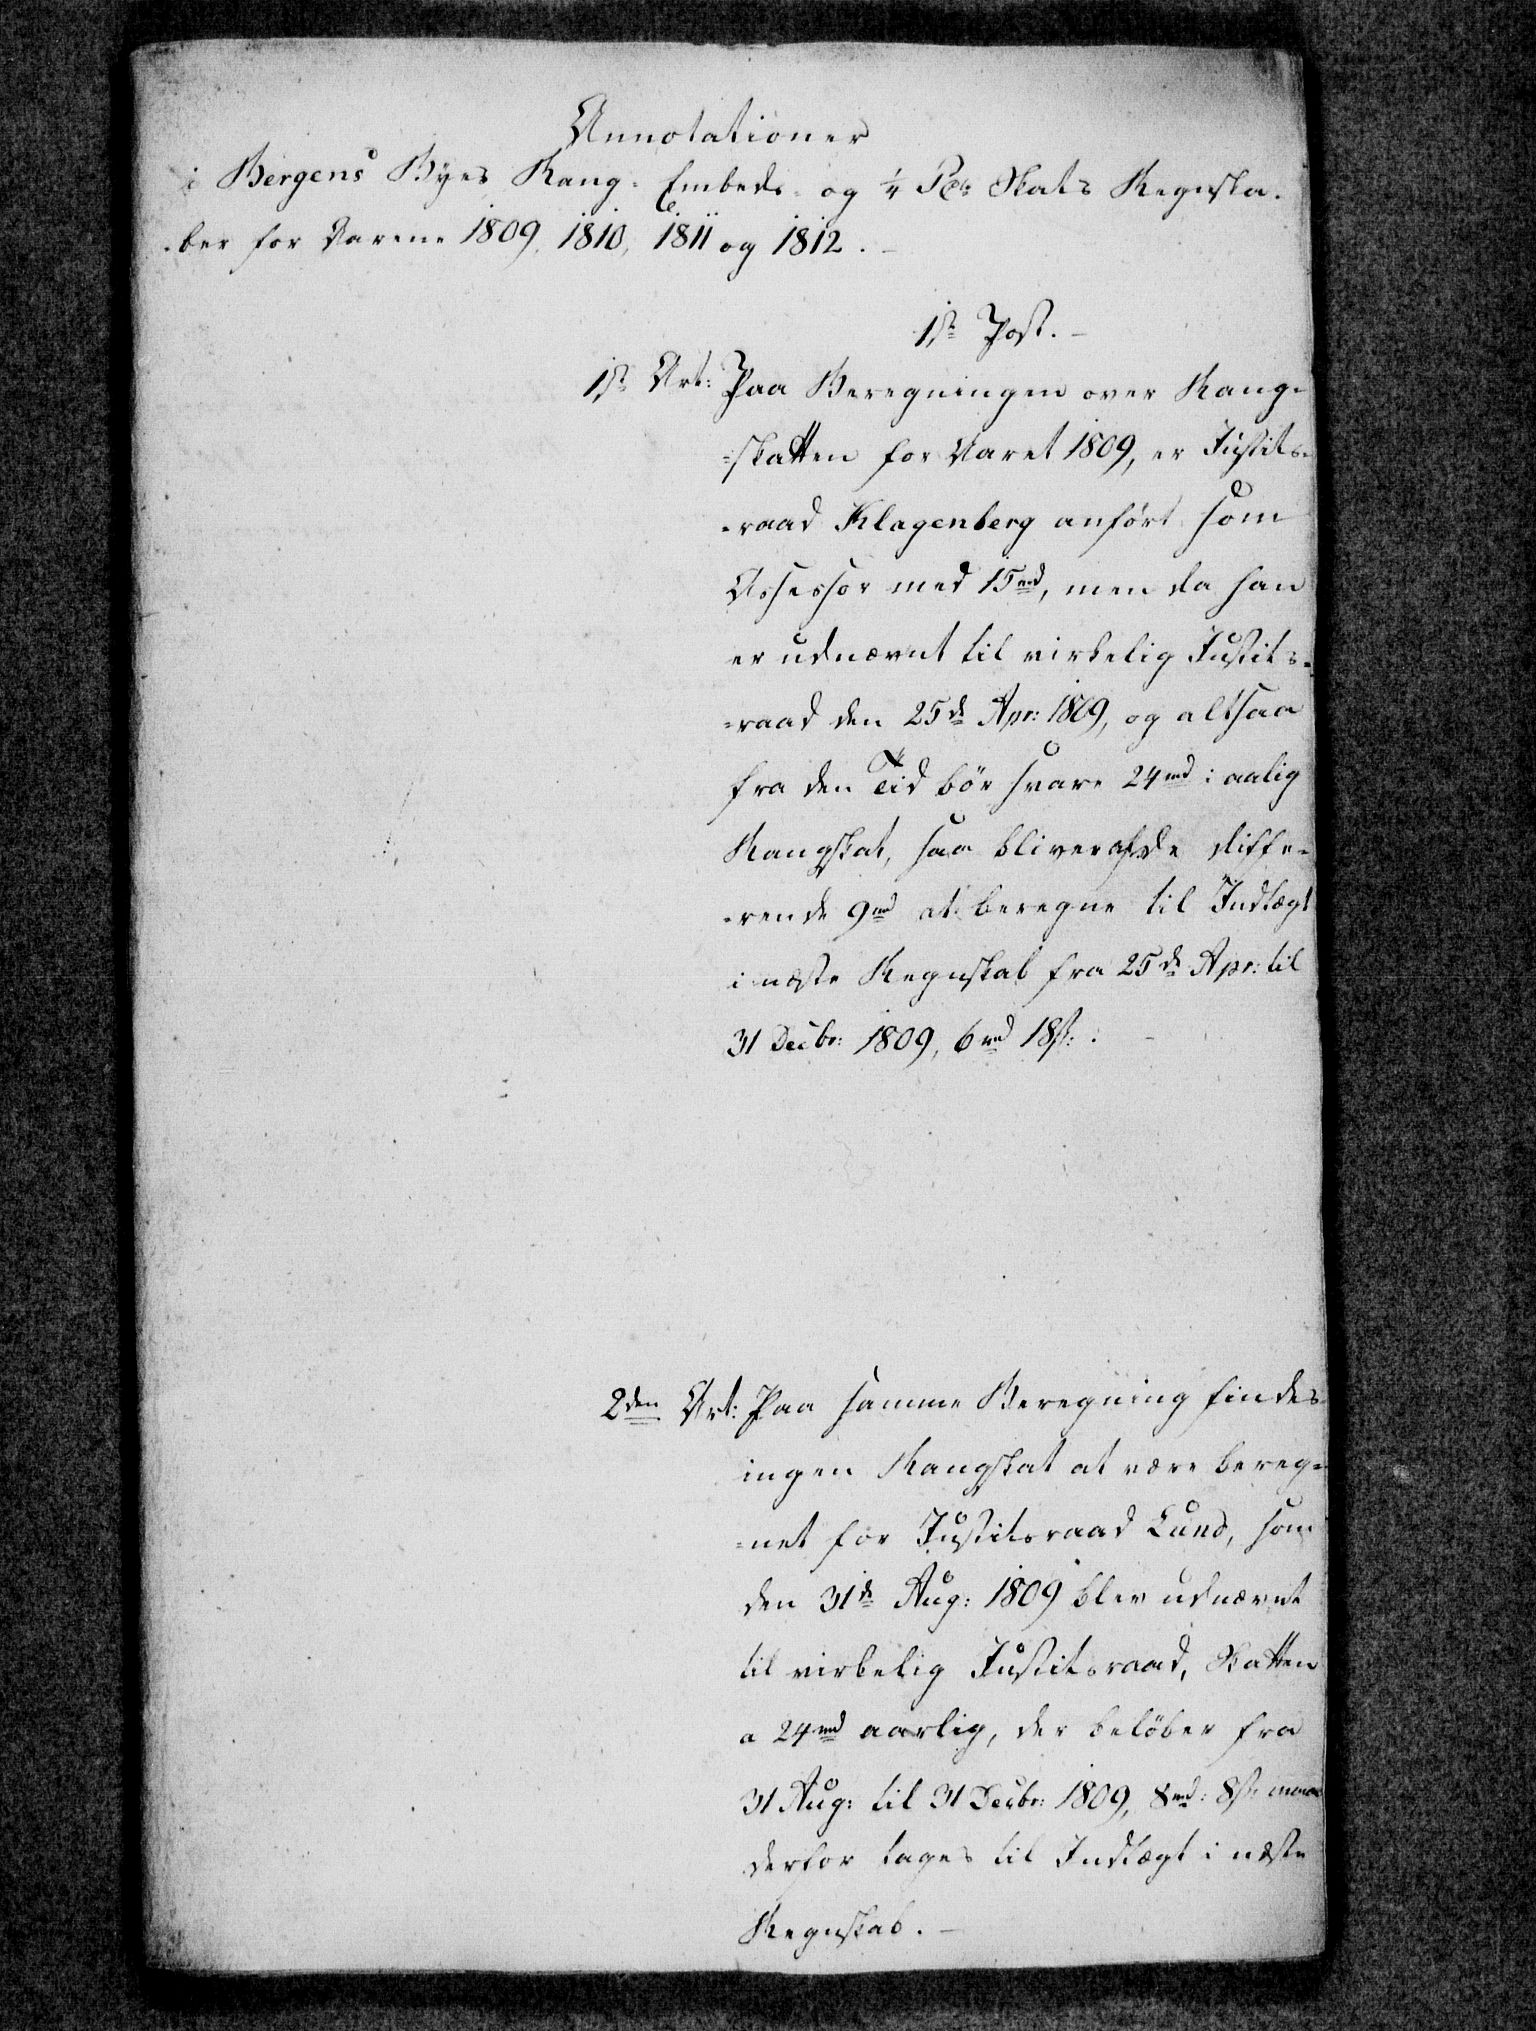 Annotationer
i Bergens Byes Rang- Embeds- og ¼ Pct: Skats Regnska-
-ber for Aarene 1809, 1810, 1811 og 1812. -
1ste Post. -
1ste Art: Paa Beregningen over Rang-
-skatten for Aaret 1809, er Justits-
-raad Klagenberg anført som
Assessor med 15rd, men da han
er udnævnt til virkelig Justits-
-raad den 25de Apr: 1809, og altsaa
fra den Tid bör svare 24rd i aalig
Rangskat, saa bliver af de diffe-
-rende 9rd at beregne til Indtægt
i næste Regnskab fra 25de Apr: til
31 Decbr: 1809, 6rd 18ſ: . -
2den Art: Paa samme Beregning findes
ingen Rangskat at være bereg-
-net for Justitsraad Lund, som
den 31de Aug: 1809 blev udnævnt
til virkelig Justitsraad, Skatten
a 24rd aarlig, der belöber fra
31 Aug: til 31 Decbr: 1809, 8rd: 8ſ: maae
derfor tages til Indtægt i næste
Regnskab. -